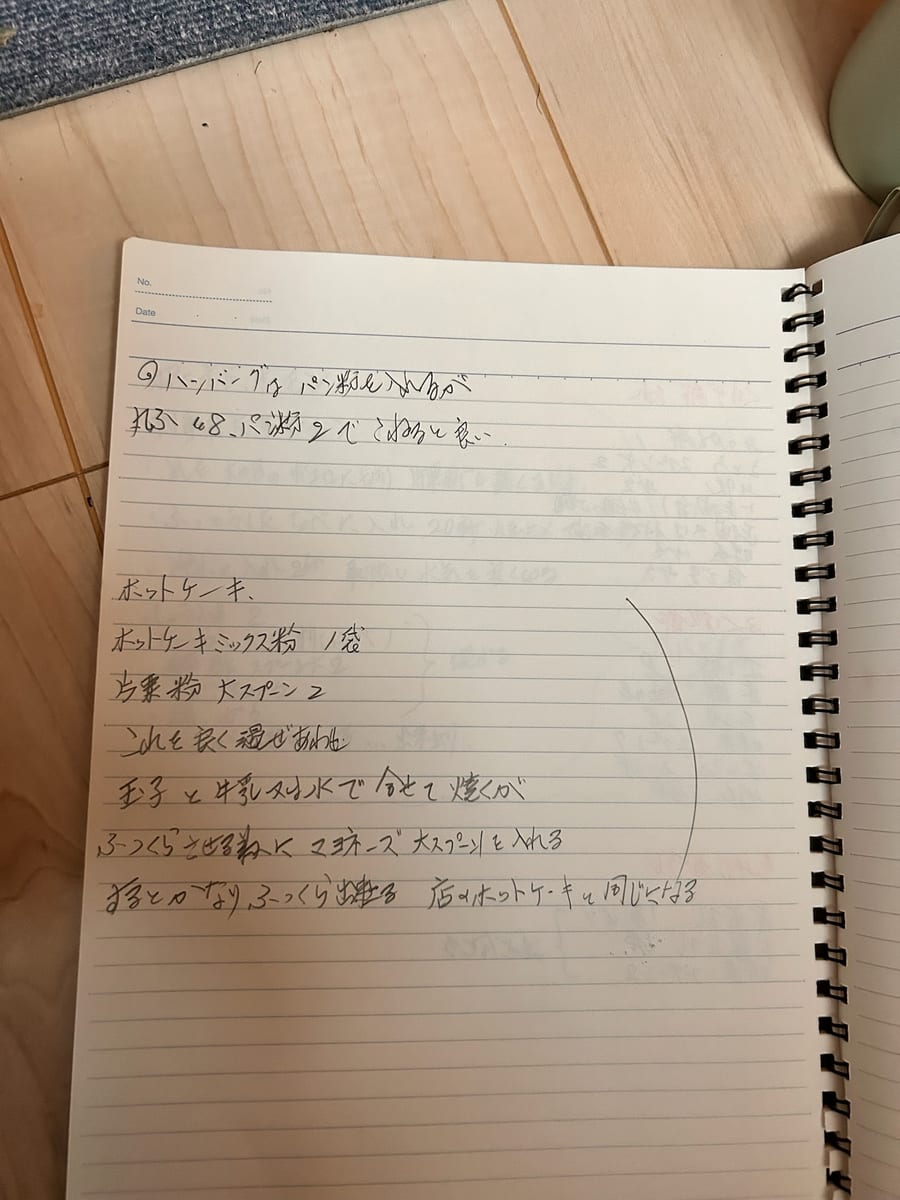 No.
Date
◎ハンバーグは パン粉を入れるが
パン粉2で こねると良い.
ホットケーキ、
ホットケーキミックス粉 1袋
片栗粉 大スプーン2
これを良く混ぜあわせ
玉子と牛乳又は水で合せて焼くが
ふっくらさせる為に マヨネーズ 大スプーン1を入れる
するとかなりふっくら出来る 店のホットケーキと同じになる